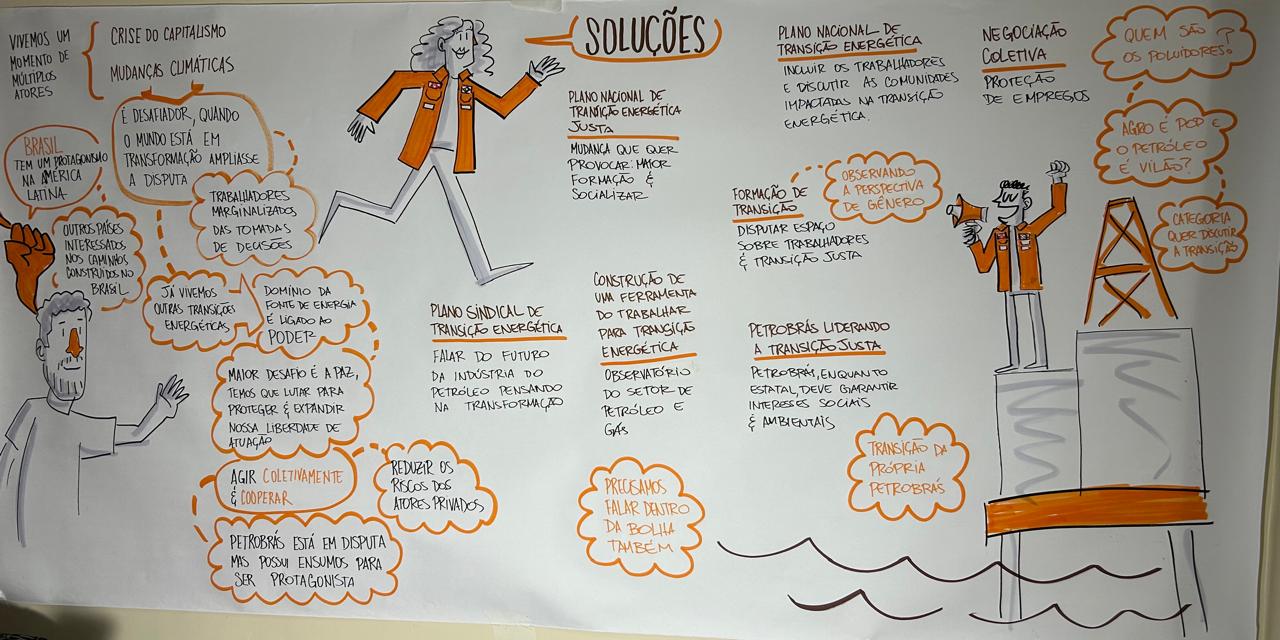 VIVEMOS UM
MOMENTO DE
MÚLTIPLOS
ATORES
CRISE DO CAPITALISMO
MUDANÇAS CLIMÁTICAS
É DESAFIADOR, QUANDO
O MUNDO ESTÁ EM
TRANSFORMAÇÃO AMPLIASSE
A DISPUTA
BRASIL
TEM UM PROTAGONISMO
NA AMÉRICA
LATINA
OUTROS PAÍSES
INTERESSADOS
NOS CAMINHOS
CONSTRUÍDOS NO
BRASIL
TRABALHADORES
MARGINALIZADOS
DAS TOMADAS
DE DECISÕES
JÁ VIVEMOS
OUTRAS TRANSIÇÕES
ENERGÉTICAS
DOMÍNIO DA
FONTE DE ENERGIA
É LIGADO AO
PODER
MAIOR DESAFIO É A PAZ,
TEMOS QUE LUTAR PARA
PROTEGER & EXPANDIR
NOSSA LIBERDADE DE
ATUAÇÃO
AGIR COLETIVAMENTE
& COOPERAR
REDUZIR OS
RISCOS DOS
ATORES PRIVADOS
PETROBRÁS ESTÁ EM DISPUTA
MAS POSSUI ENSUMOS PARA
SER PROTAGONISTA
SOLUÇÕES
PLANO NACIONAL DE
TRANSIÇÃO ENERGÉTICA
JUSTA
MUDANÇA QUE QUER
PROVOCAR: MAIOR
FORMAÇÃO &
SOCIALIZAR
PLANO SINDICAL DE
TRANSIÇÃO ENERGÉTICA
FALAR DO FUTURO
DA INDÚSTRIA DO
PETRÓLEO PENSANDO
NA TRANSFORMAÇÃO
CONSTRUÇÃO DE
UMA FERRAMENTA
DO TRABALHAR
PARA TRANSIÇÃO
ENERGÉTICA
OBSERVATÓRIO
DO SETOR DE
PETRÓLEO E
GÁS
PRECISAMOS
FALAR DENTRO
DA BOLHA
TAMBÉM
PLANO NACIONAL DE
TRANSIÇÃO ENERGÉTICA
INCLUIR OS TRABALHADORES
E DISCUTIR AS COMUNIDADES
IMPACTADAS NA TRANSIÇÃO
ENERGÉTICA.
FORMAÇÃO DE
TRANSIÇÃO
DISPUTAR ESPAÇO
SOBRE TRABALHADORES
& TRANSIÇÃO JUSTA
OBSERVANDO
A PERSPECTIVA
DE GÊNERO
PETROBRÁS LIDERANDO
A TRANSIÇÃO JUSTA
PETROBRÁS, ENQUANTO
ESTATAL, DEVE GARANTIR
INTERESSES SOCIAIS
& AMBIENTAIS
TRANSIÇÃO DA
PRÓPRIA
PETROBRÁS
NEGOCIAÇÃO
COLETIVA
PROTEÇÃO
DE EMPREGOS
QUEM SÃO
OS POLUIDORES?
AGRO É POP E
O PETRÓLEO
É VILÃO?
CATEGORIA
QUER DISCUTIR
A TRANSIÇÃO